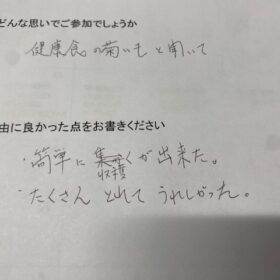 どんな思いでご参加でしょうか
健康食の菊いもと聞いて
由に良かった点をお書きください
・簡単に収穫が出来た。
・たくさんとれてうれしかった。